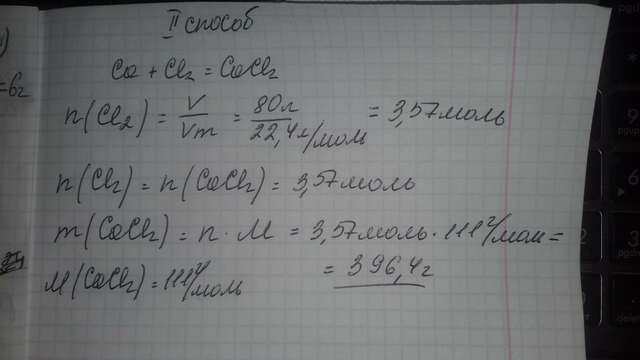 II способ
Ca + Cl2 = CaCl2
n(Cl2) = V/Vm = 80л/22,4л/моль = 3,57моль
n(Cl2) = n(CaCl2) = 3,57моль
m(CaCl2) = n · M = 3,57моль · 111г/моль =
= 396,4г
M(CaCl2) = 111г/моль
=6г